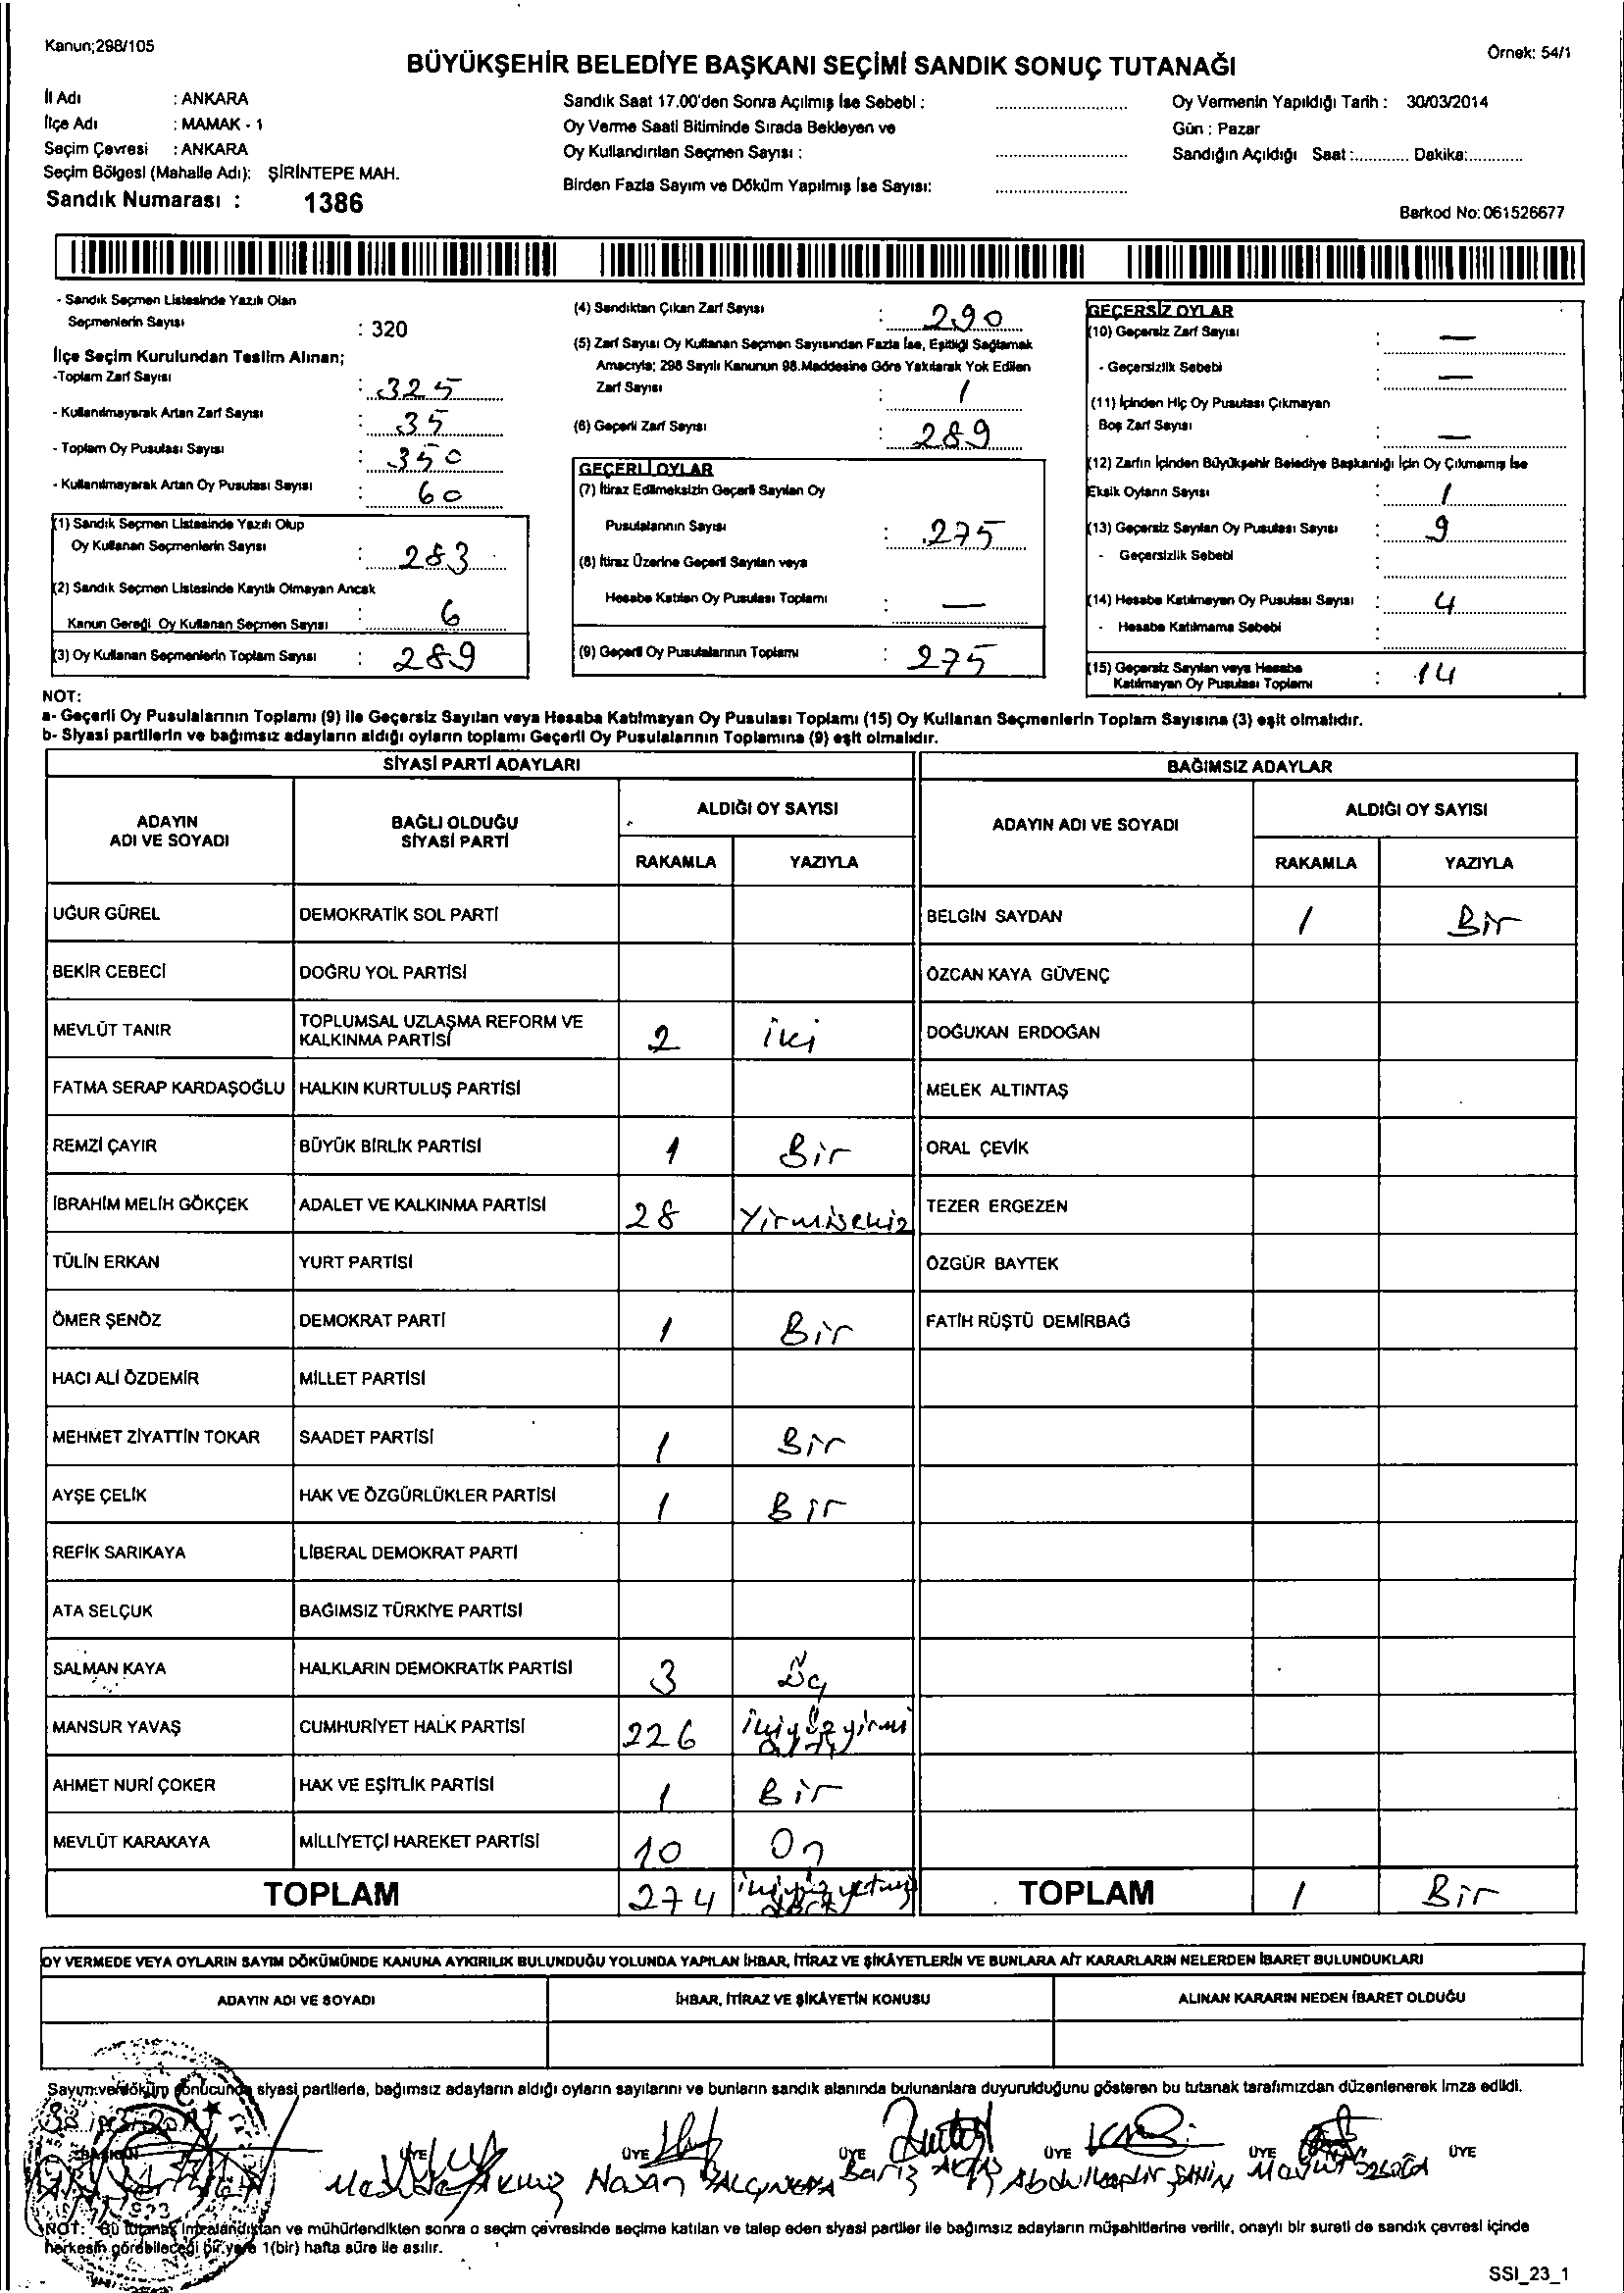 Kanun;298/105
Örnek: 54/1
BÜYÜKŞEHİR BELEDİYE BAŞKANI SEÇİMİ SANDIK SONUÇ TUTANAĞI
İl Adı : ANKARA
İlçe Adı : MAMAK - 1
Seçim Çevresi : ANKARA
Seçim Bölgesi (Mahalle Adı): ŞİRİNTEPE MAH.
Sandık Numarası : 1386
Sandık Saat 17.00'den Sonra Açılmış İse Sebebi :
Oy Verme Saati Bitiminde Sırada Bekleyen ve
Oy Kullandırılan Seçmen Sayısı :
Birden Fazla Sayım ve Döküm Yapılmış İse Sayısı:
Oy Vermenin Yapıldığı Tarih : 30/03/2014
Gün : Pazar
Sandığın Açıldığı Saat :............ Dakika:............
Barkod No: 061526677
- Sandık Seçmen Listesinde Yazılı Olan
Seçmenlerin Sayısı : 320
İlçe Seçim Kurulundan Teslim Alınan;
-Toplam Zarf Sayısı : 325
- Kullanılmayarak Artan Zarf Sayısı : 35
- Toplam Oy Pusulası Sayısı : 350
- Kullanılmayarak Artan Oy Pusulası Sayısı : 60
(1) Sandık Seçmen Listesinde Yazılı Olup
Oy Kullanan Seçmenlerin Sayısı : 283
(2) Sandık Seçmen Listesinde Kayıtlı Olmayan Ancak
Kanun Gereği Oy Kullanan Seçmen Sayısı : 6
(3) Oy Kullanan Seçmenlerin Toplam Sayısı : 289
(4) Sandıktan Çıkan Zarf Sayısı : 290
(5) Zarf Sayısı Oy Kullanan Seçmen Sayısından Fazla İse, Eşitliği Sağlamak
Amacıyla; 298 Sayılı Kanunun 98.Maddesine Göre Yakılarak Yok Edilen
Zarf Sayısı : 1
(6) Geçerli Zarf Sayısı : 289
GEÇERLİ OYLAR
(7) İtiraz Edilmeksizin Geçerli Sayılan Oy
Pusulalarının Sayısı : 275
(8) İtiraz Üzerine Geçerli Sayılan veya
Hesaba Katılan Oy Pusulası Toplamı : —
(9) Geçerli Oy Pusulalarının Toplamı : 275
GEÇERSİZ OYLAR
(10) Geçersiz Zarf Sayısı : —
- Geçersizlik Sebebi : —
(11) İçinden Hiç Oy Pusulası Çıkmayan
Boş Zarf Sayısı : —
(12) Zarfın İçinden Büyükşehir Belediye Başkanlığı İçin Oy Çıkmamış İse
Eksik Oyların Sayısı : 1
(13) Geçersiz Sayılan Oy Pusulası Sayısı : 9
- Geçersizlik Sebebi :
(14) Hesaba Katılmayan Oy Pusulası Sayısı : 4
- Hesaba Katılmama Sebebi :
(15) Geçersiz Sayılan veya Hesaba
Katılmayan Oy Pusulası Toplamı : 14
NOT:
a- Geçerli Oy Pusulalarının Toplamı (9) ile Geçersiz Sayılan veya Hesaba Katılmayan Oy Pusulası Toplamı (15) Oy Kullanan Seçmenlerin Toplam Sayısına (3) eşit olmalıdır.
b- Siyasi partilerin ve bağımsız adayların aldığı oyların toplamı Geçerli Oy Pusulalarının Toplamına (9) eşit olmalıdır.
SİYASİ PARTİ ADAYLARI
ADAYIN ADI VE SOYADI
BAĞLI OLDUĞU SİYASİ PARTİ
ALDIĞI OY SAYISI
RAKAMLA YAZIYLA
UĞUR GÜREL DEMOKRATİK SOL PARTİ
BEKİR CEBECİ DOĞRU YOL PARTİSİ
MEVLÜT TANIR TOPLUMSAL UZLAŞMA REFORM VE KALKINMA PARTİSİ 2 iki
FATMA SERAP KARDAŞOĞLU HALKIN KURTULUŞ PARTİSİ
REMZİ ÇAYIR BÜYÜK BİRLİK PARTİSİ 1 Bir
İBRAHİM MELİH GÖKÇEK ADALET VE KALKINMA PARTİSİ 28 Yirmisekiz
TÜLİN ERKAN YURT PARTİSİ
ÖMER ŞENÖZ DEMOKRAT PARTİ 1 Bir
HACI ALİ ÖZDEMİR MİLLET PARTİSİ
MEHMET ZİYATTİN TOKAR SAADET PARTİSİ 1 Bir
AYŞE ÇELİK HAK VE ÖZGÜRLÜKLER PARTİSİ 1 Bir
REFİK SARIKAYA LİBERAL DEMOKRAT PARTİ
ATA SELÇUK BAĞIMSIZ TÜRKİYE PARTİSİ
SALMAN KAYA HALKLARIN DEMOKRATİK PARTİSİ 3 Üç
MANSUR YAVAŞ CUMHURİYET HALK PARTİSİ 226 ikiyüzyirmi altı
AHMET NURİ ÇOKER HAK VE EŞİTLİK PARTİSİ 1 Bir
MEVLÜT KARAKAYA MİLLİYETÇİ HAREKET PARTİSİ 10 On
TOPLAM 274 ikiyüzyetmiş dört
BAĞIMSIZ ADAYLAR
ADAYIN ADI VE SOYADI
ALDIĞI OY SAYISI
RAKAMLA YAZIYLA
BELGİN SAYDAN 1 Bir
ÖZCAN KAYA GÜVENÇ
DOĞUKAN ERDOĞAN
MELEK ALTINTAŞ
ORAL ÇEVİK
TEZER ERGEZEN
ÖZGÜR BAYTEK
FATİH RÜŞTÜ DEMİRBAĞ
TOPLAM 1 Bir
OY VERMEDE VEYA OYLARIN SAYIM DÖKÜMÜNDE KANUNA AYKIRILIK BULUNDUĞU YOLUNDA YAPILAN İHBAR, İTİRAZ VE ŞİKÂYETLERİN VE BUNLARA AİT KARARLARIN NELERDEN İBARET BULUNDUKLARI
ADAYIN ADI VE SOYADI
İHBAR, İTİRAZ VE ŞİKÂYETİN KONUSU
ALINAN KARARIN NEDEN İBARET OLDUĞU
Sayım ve döküm sonucunda siyasi partilerle, bağımsız adayların aldığı oyların sayılarını ve bunların sandık alanında bulunanlara duyurulduğunu gösteren bu tutanak tarafımızdan düzenlenerek imza edildi.
BAŞKAN ÜYE ÜYE ÜYE ÜYE ÜYE ÜYE
Hasan Barış Abdulkadir ŞAHİN
NOT: Bu tutanak imzalandıktan ve mühürlendikten sonra o seçim çevresinde seçime katılan ve talep eden siyasi partiler ile bağımsız adayların müşahitlerine verilir, onaylı bir sureti de sandık çevresi içinde
herkesin görebileceği bir yere 1(bir) hafta süre ile asılır.
SSI_23_1